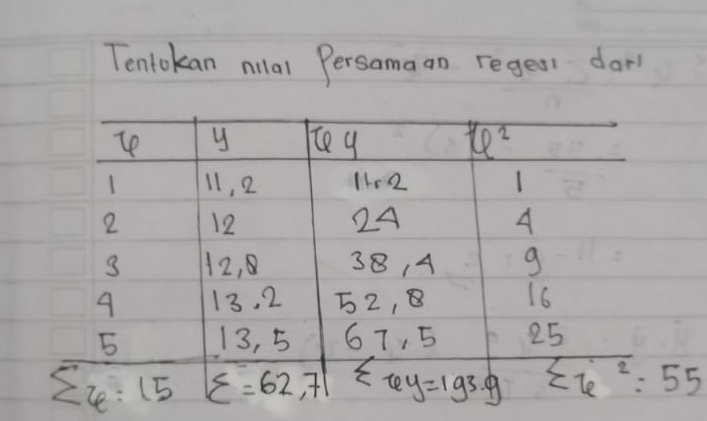 Tentokan nilai Persamaan regesi dari
x y xy x²
1 11,2 11.2 1
2 12 24 4
3 12,8 38,4 9
4 13.2 52,8 16
5 13,5 67,5 25
Σx: 15 Σ=62,7 Σxy=193.9 Σx²: 55